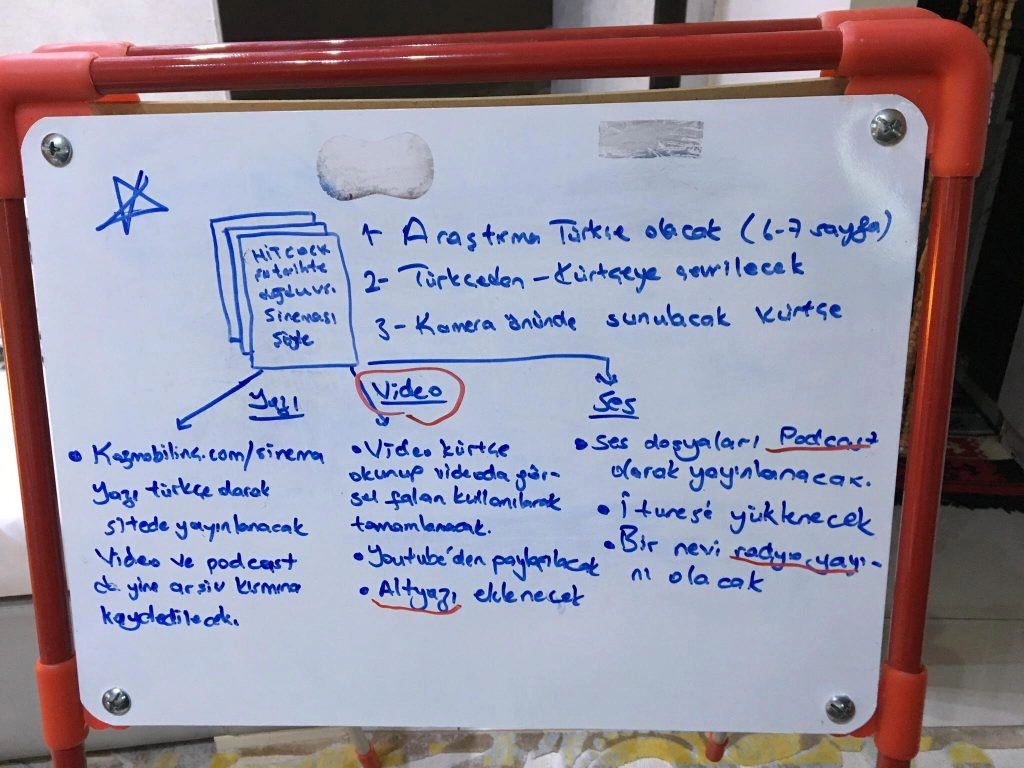 1- Araştırma Türkçe olacak (6-7 sayfa)
2- Türkçeden - Kürtçeye çevrilecek
3- Kamera önünde sunulacak Kürtçe
HiTCOCK
şu tarihte
doğdu vs.
Sineması
şöyle
Yazı
• Kozmobilinc.com/sinema
Yazı türkçe olarak
sitede yayınlanacak
Video ve podcast
de yine arşiv kısmına
kaydedilecek.
Video
• Video kürtçe
okunup videoda gör-
sel falan kullanılarak
tamamlanacak.
• Youtube'den paylaşılacak
• Altyazı eklenecek
Ses
• Ses dosyaları Podcast
olarak yayınlanacak.
• İtunes'e yüklenecek
• Bir nevi radyo yayı-
nı olacak